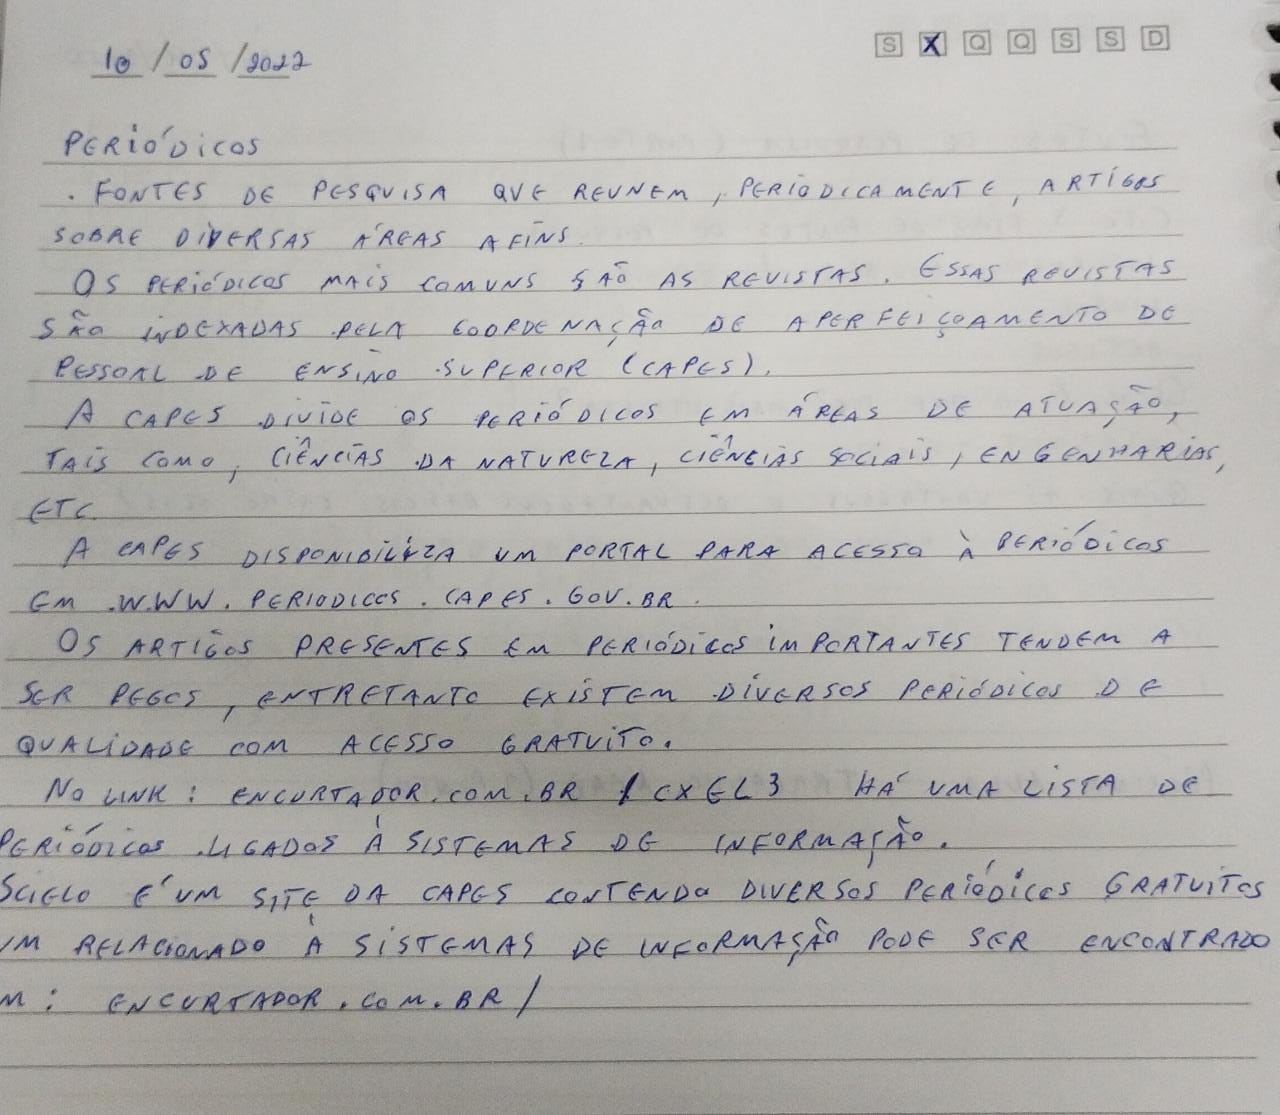 10/05/2022
S X Q Q S S D
PERIÓDICOS
. FONTES DE PESQUISA QUE REUNEM, PERIODICAMENTE, ARTIGOS
SOBRE DIVERSAS ÁREAS AFINS.
OS PERIÓDICOS MAIS COMUNS SÃO AS REVISTAS. ESSAS REVISTAS
SÃO INDEXADAS PELA COORDENAÇÃO DE APERFEIÇOAMENTO DE
PESSOAL DE ENSINO SUPERIOR (CAPES).
A CAPES DIVIDE OS PERIÓDICOS EM ÁREAS DE ATUAÇÃO,
TAIS COMO, CIÊNCIAS DA NATUREZA, CIÊNCIAS SOCIAIS, ENGENHARIAS,
ETC.
A CAPES DISPONIBILIZA UM PORTAL PARA ACESSO À PERIÓDICOS
EM .WWW.PERIODICOS.CAPES.GOV.BR.
OS ARTIGOS PRESENTES EM PERIÓDICOS IMPORTANTES TENDEM A
SER PEGOS, ENTRETANTO EXISTEM DIVERSOS PERIÓDICOS DE
QUALIDADE COM ACESSO GRATUITO.
NO LINK: ENCURTADOR.COM.BR/CXEL3 HÁ UMA LISTA DE
PERIÓDICOS LIGADOS À SISTEMAS DE INFORMAÇÃO.
SCIELO É UM SITE DA CAPES CONTENDO DIVERSOS PERIÓDICOS GRATUITOS
UM RELACIONADO À SISTEMAS DE INFORMAÇÃO PODE SER ENCONTRADO
M: ENCURTADOR.COM.BR/